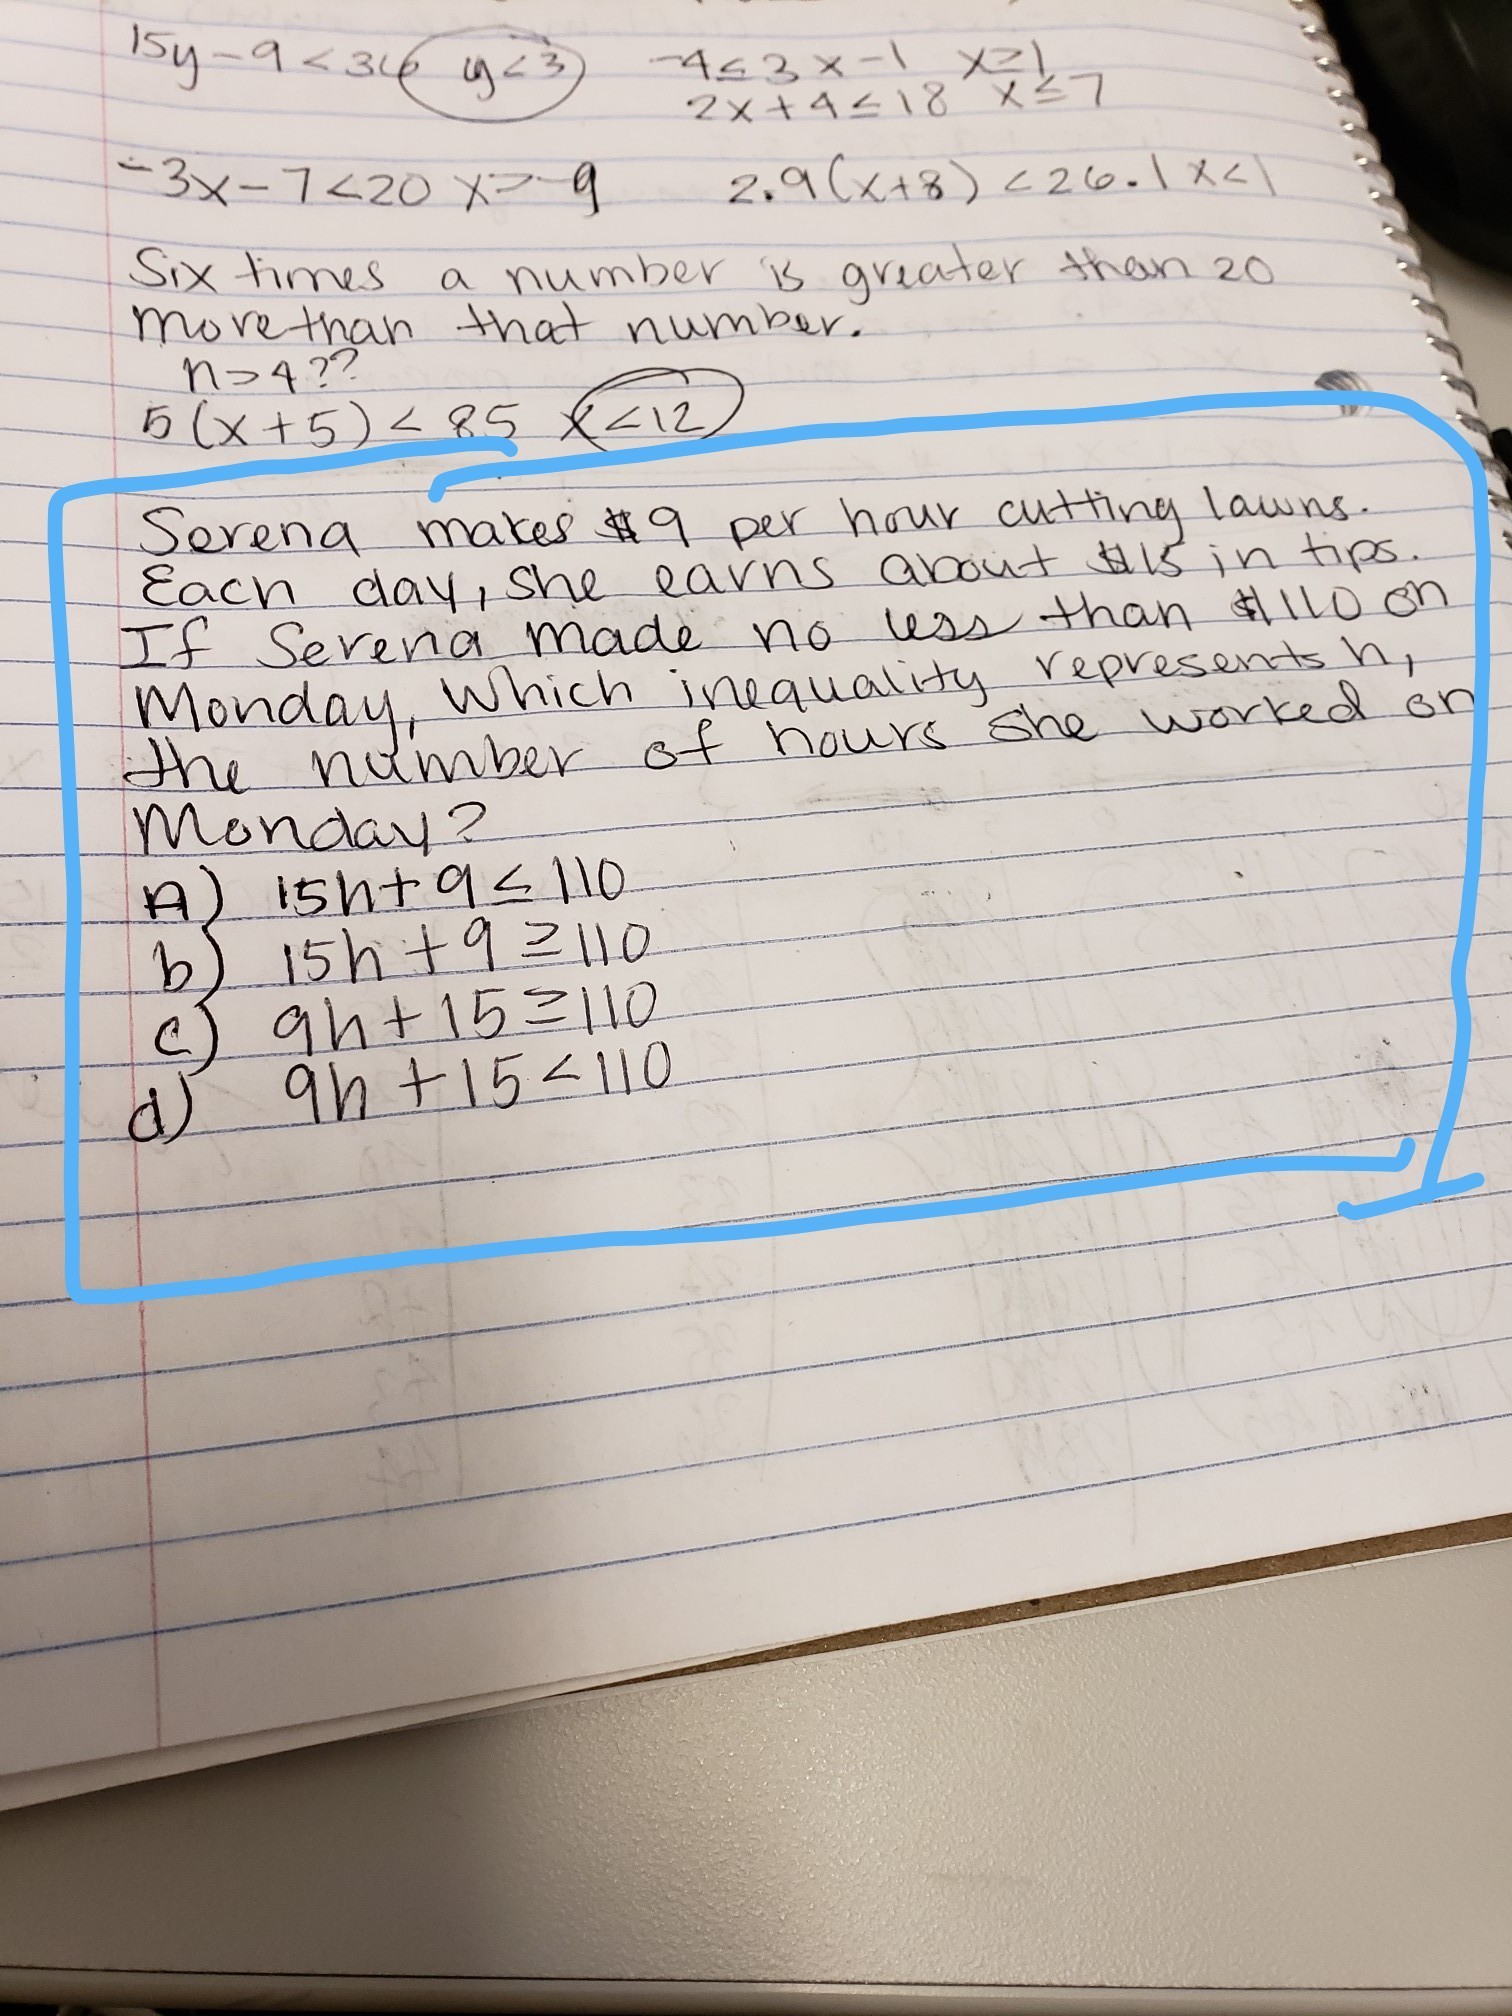 15y-9<36 y<3 -4≤3x-1 x≥1
2x+4≤18 x≤7
-3x-7<20 x>-9 2.9(x+8)<26.1 x<1
Six times a number is greater than 20
more than that number.
n>4??
5(x+5)<85 x<12
Serena makes $9 per hour cutting lawns.
Each day, she earns about $15 in tips.
If Serena made no less than $110 on
Monday, Which inequality represents h,
the number of hours she worked on
Monday?
A) 15h+9≤110
b) 15h+9≥110
c) 9h+15≥110
d) 9h+15<110